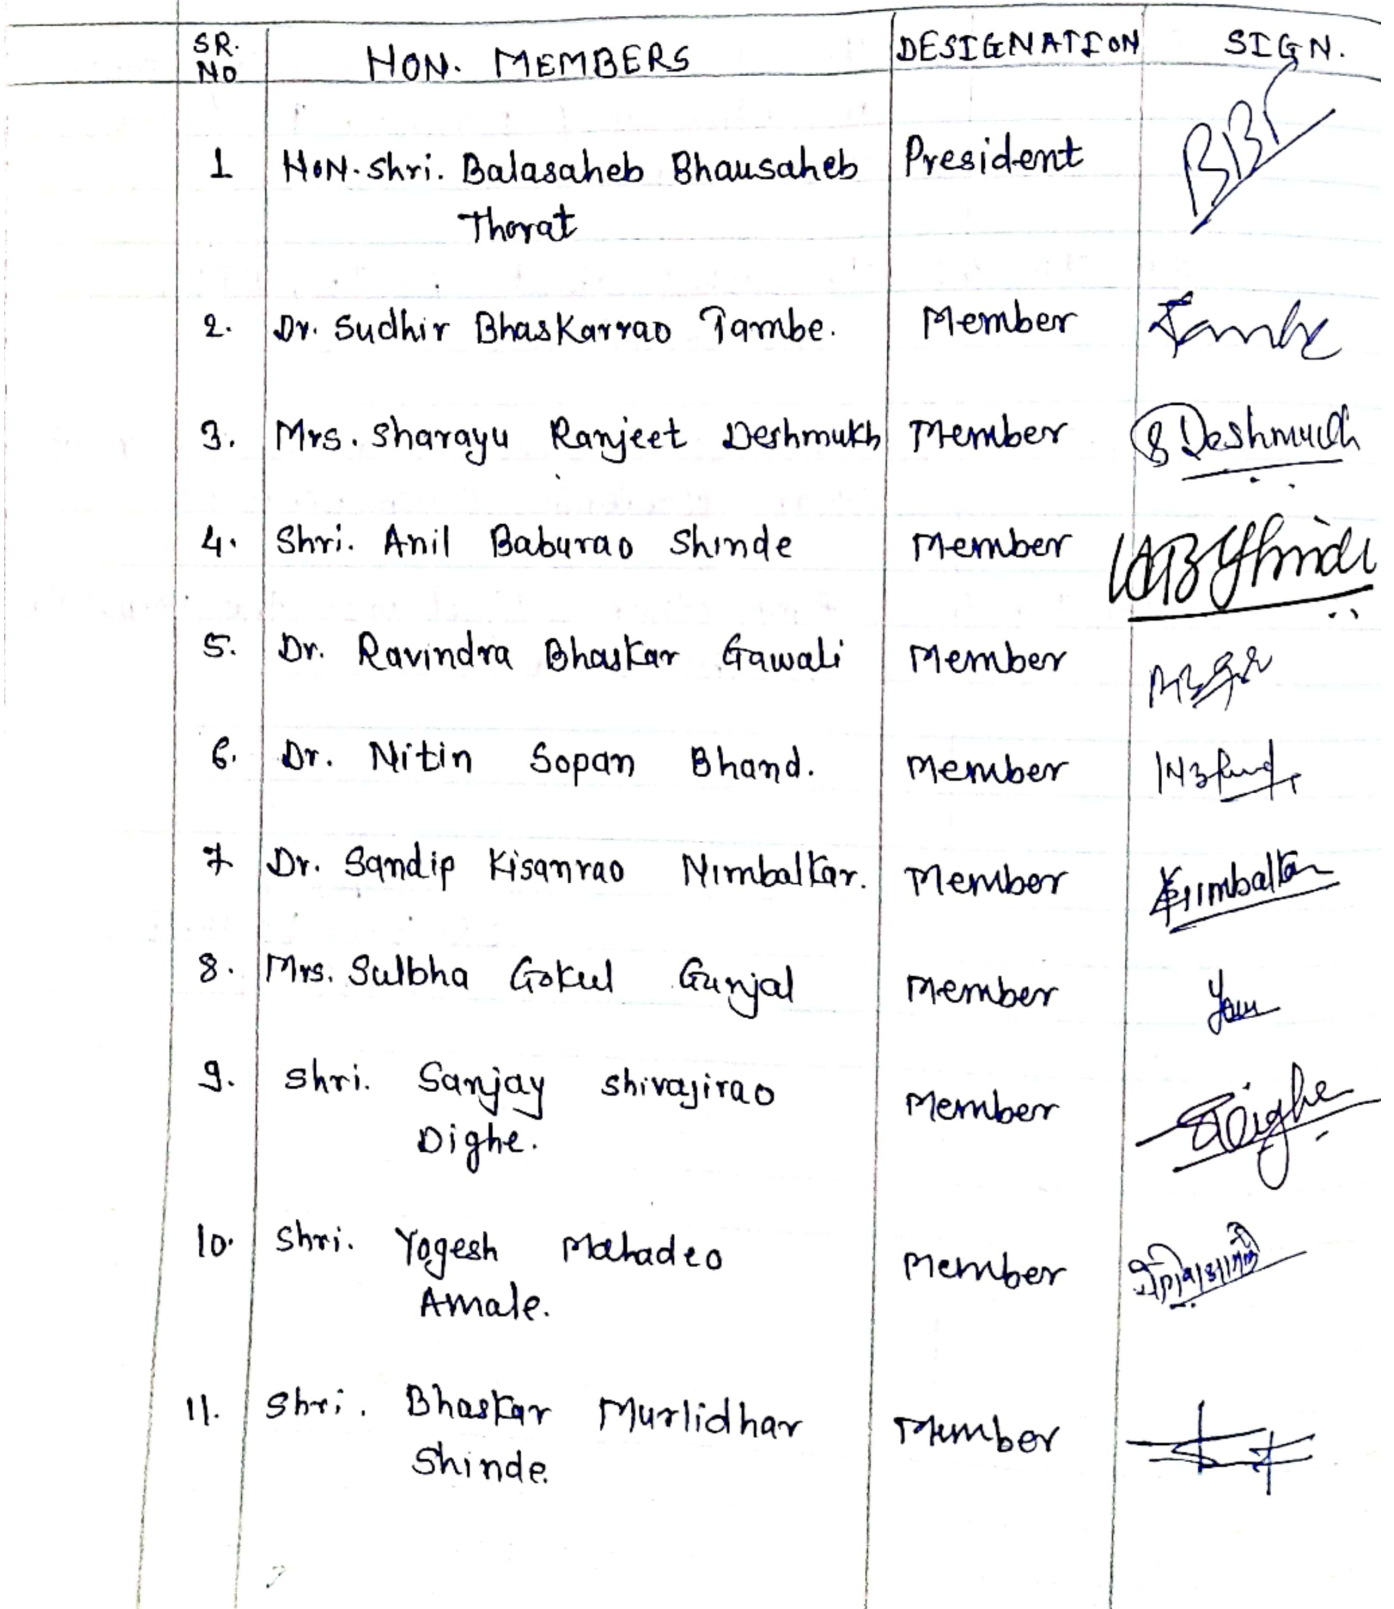 SR. NO HON. MEMBERS DESIGNATION SIGN.
1 HON. Shri. Balasaheb Bhausaheb President
Thorat
2. Dr. Sudhir Bhaskarrao Tambe. Member Tambe
3. Mrs. Sharayu Ranjeet Deshmukh Member SDeshmukh
4. Shri. Anil Baburao Shinde Member ABShinde
5. Dr. Ravindra Bhaskar Gawali Member
6. Dr. Nitin Sopan Bhand. Member
7 Dr. Sandip Kisanrao Nimbalkar. Member Nimbalkar
8. Mrs. Sulbha Gokul Gunjal Member
9. Shri. Sanjay Shivajirao Member Dighe
Dighe.
10. Shri. Yogesh Mahadeo Member
Amale.
11. Shri. Bhaskar Murlidhar Member
Shinde.